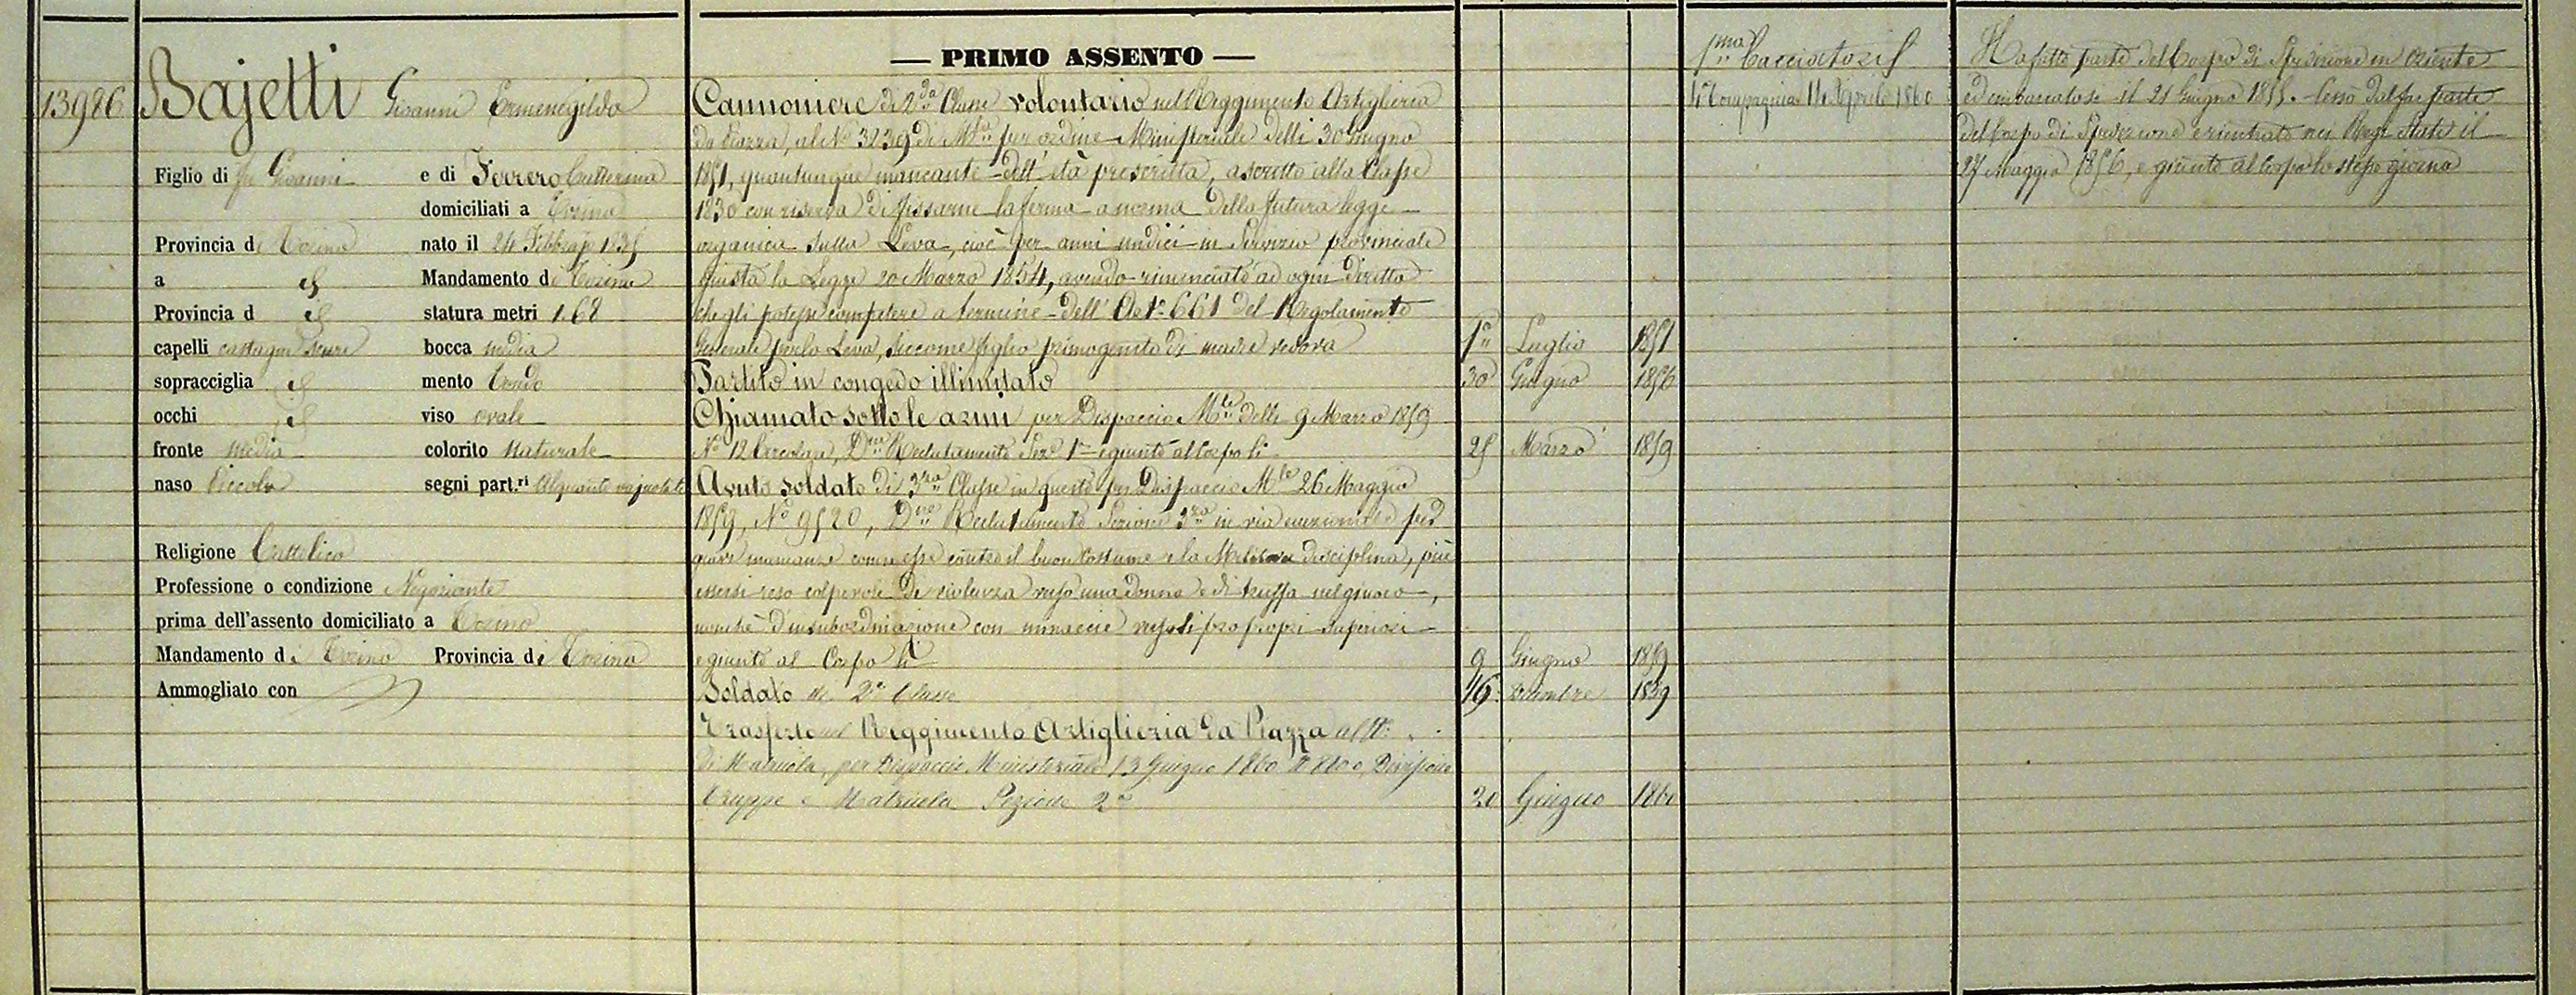 13986
Bajetti Giovanni Ermenegildo
Figlio di fu Giovanni e di Ferrero Catterina
domiciliati a Torino
Provincia di Torino nato il 24 Febbrajo 1835
a id Mandamento di Torino
Provincia d id statura metri 1.68
capelli castagni scuri bocca media
sopracciglia id mento tondo
occhi id viso ovale
fronte media colorito naturale
naso piccolo segni part.ri alquanto vajuolato
Religione Cattolico
Professione o condizione Negoziante
prima dell'assento domiciliato a Torino
Mandamento di Torino Provincia di Torino
Ammogliato con
— PRIMO ASSENTO —
Cannoniere di 2da Classe volontario nel Reggimento Artiglieria
da Piazza, al No 3239 di Mla per ordine Ministeriale delli 30 Giugno
1851, quantunque mancante dell'età prescritta, ascritto alla Classe
1830 con riserva di fissarne la ferma a norma della futura legge
organica sulla Leva, cioè per anni undici in Servizio provinciale
giusta la Legge 20 Marzo 1854, avendo rinunciato ad ogni diritto
che gli potesse competere a termine dell'Art. 661 del Regolamento
Generale per la Leva, siccome figlio primogenito di madre vedova 1o Luglio 1851
Partito in congedo illimitato 30 Giugno 1856
Chiamato sotto le armi per Dispaccio Mle delli 9 Marzo 1859
No 12 Circolare, Dne Reclutamento Sez. 1a e giunto al Corpo li 25 Marzo 1859
Avuto soldato di 3za Classe in questo per Dispaccio Mle 26 Maggio
1859, No 9520, Dne Reclutamento Sezione 3za in via eccezionale per
gravi mancanze commesse contro il buon costume e la Militare disciplina, per
essersi reso colpevole di violenza verso una donna e di truffa nel giuoco,
nonchè d'insubordinazione con minaccie verso li proprj superiori
e giunto al Corpo li 9 Giugno 1859
Soldato di 2a Classe 16 Dicembre 1859
Trasferto nel Reggimento Artiglieria da Piazza al No
di Matricola, per Dispaccio Ministeriale 13 Giugno 1860 No 8200, Divisione
Truppe e Matricola Sezione 2a 20 Giugno 1860
1ma Cacciatori
4a Compagnia 14 Aprile 1860
Ha fatto parte del Corpo di Spedizione in Oriente
ed imbarcatosi il 21 Giugno 1855. Cessò dal far parte
del Corpo di Spedizione e rientrato nei Regi Stati il
27 Maggio 1856, e giunto al Corpo lo stesso giorno